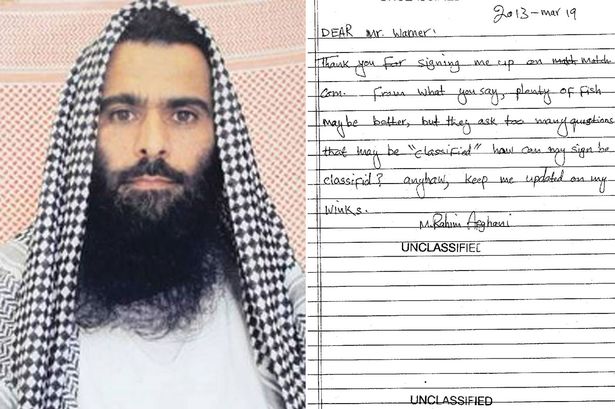 2013-mar 19
DEAR Mr. Warner!
Thank you For signing me up on match
Com. From what you say, plenty of Fish
maybe better, but they ask too many questions
that may be "classified" how can my sign be
classifid? anyhaw, keep me updated on my
winks.
M.Rahim Afghani
UNCLASSIFIED
UNCLASSIFIED